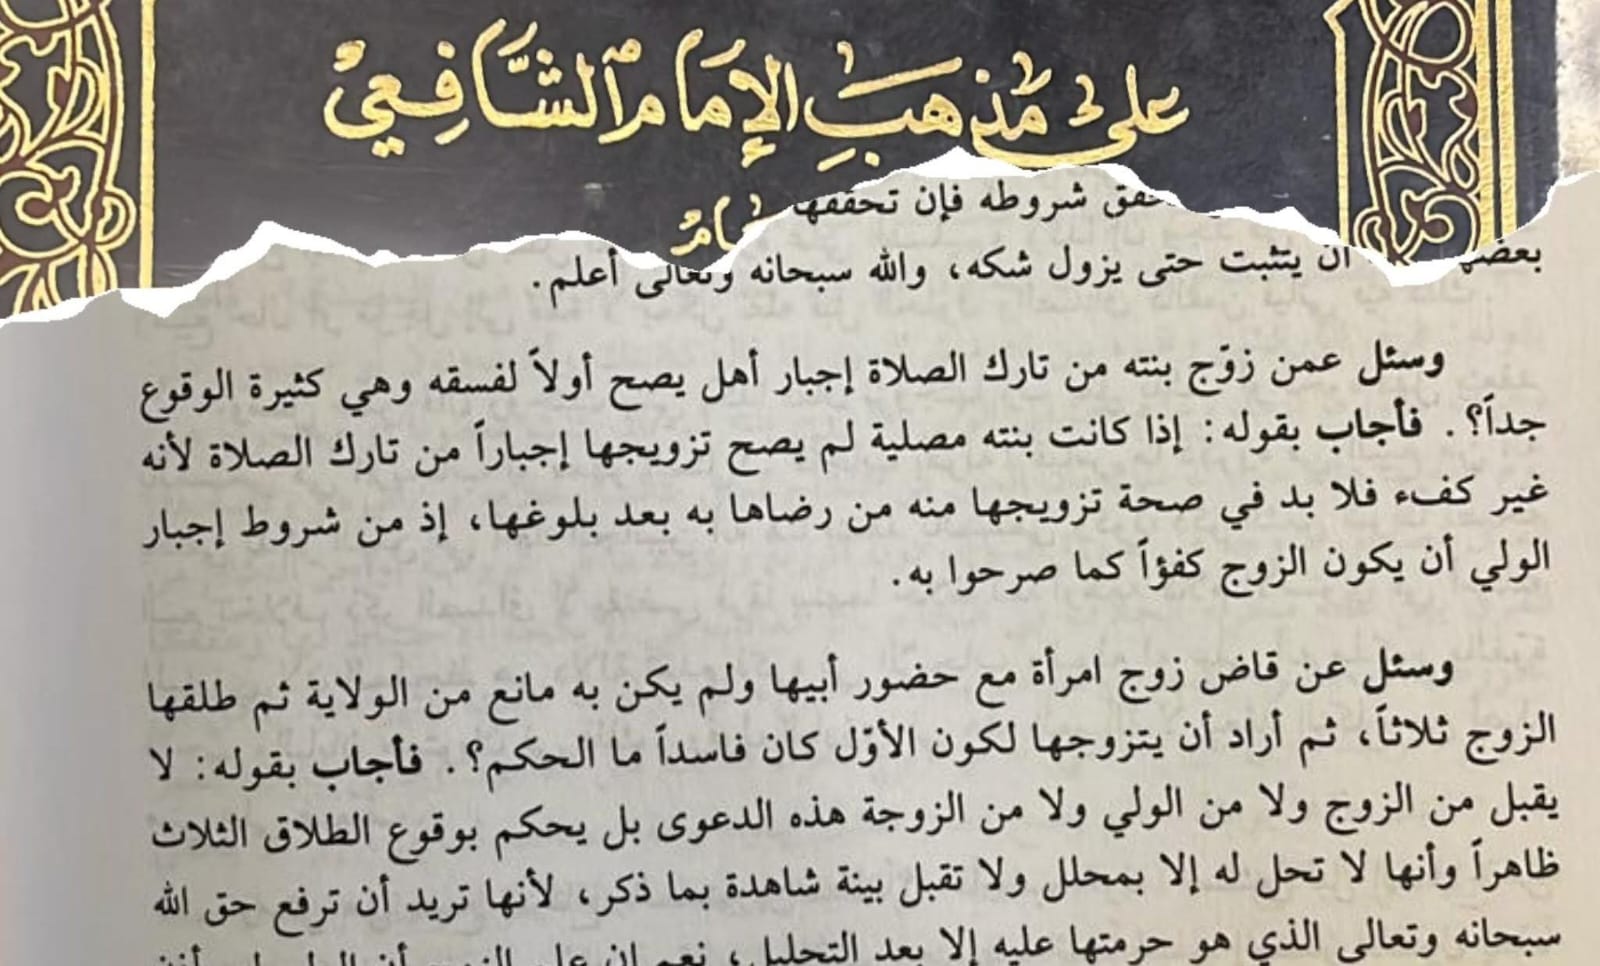 على مذهب الإمام الشافعي
شروطه فإن تحققها
أن يتثبت حتى يزول شكه، والله سبحانه وتعالى أعلم.
وسئل عمن زوّج بنته من تارك الصلاة إجبار أهل يصح أولاً لفسقه وهي كثيرة الوقوع
جداً؟. فأجاب بقوله: إذا كانت بنته مصلية لم يصح تزويجها إجباراً من تارك الصلاة لأنه
غير كفء فلا بد في صحة تزويجها منه من رضاها به بعد بلوغها، إذ من شروط إجبار
الولي أن يكون الزوج كفؤاً كما صرحوا به.
وسئل عن قاض زوج امرأة مع حضور أبيها ولم يكن به مانع من الولاية ثم طلقها
الزوج ثلاثاً، ثم أراد أن يتزوجها لكون الأوّل كان فاسداً ما الحكم؟. فأجاب بقوله: لا
يقبل من الزوج ولا من الولي ولا من الزوجة هذه الدعوى بل يحكم بوقوع الطلاق الثلاث
ظاهراً وأنها لا تحل له إلا بمحلل ولا تقبل بينة شاهدة بما ذكر، لأنها تريد أن ترفع حق الله
سبحانه وتعالى الذي هو حرمتها عليه إلا بعد التحليل، نعم إن علم الزوج أن